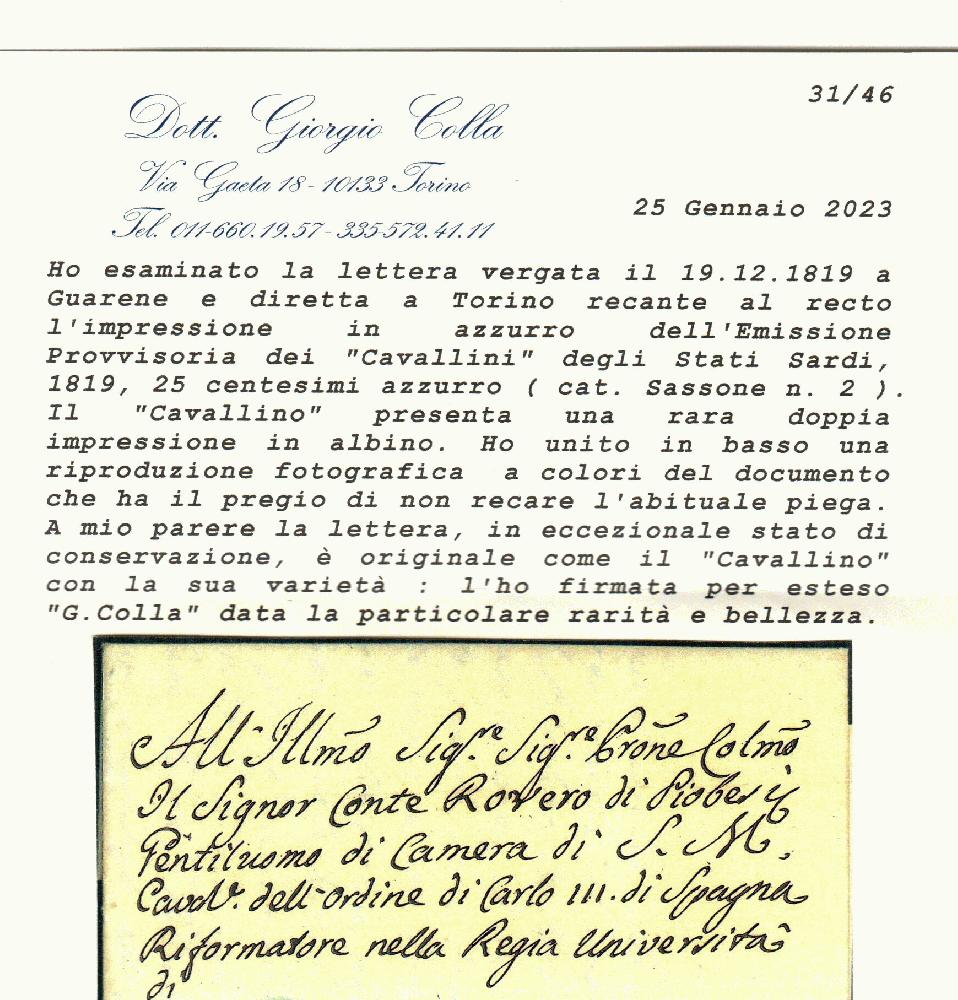 31/46
Dott. Giorgio Colla
Via Gaeta 18 - 10133 Torino
25 Gennaio 2023
Tel. 011-660.19.57 - 335-572.41.11
Ho esaminato la lettera vergata il 19.12.1819 a
Guarene e diretta a Torino recante al recto
l'impressione in azzurro dell'Emissione
Provvisoria dei "Cavallini" degli Stati Sardi,
1819, 25 centesimi azzurro ( cat. Sassone n. 2 ).
Il "Cavallino" presenta una rara doppia
impressione in albino. Ho unito in basso una
riproduzione fotografica a colori del documento
che ha il pregio di non recare l'abituale piega.
A mio parere la lettera, in eccezionale stato di
conservazione, è originale come il "Cavallino"
con la sua varietà : l'ho firmata per esteso
"G.Colla" data la particolare rarità e bellezza.
All'Illmo Sigre Sigre Prone Colmo
Il Signor Conte Rovero di Piobesi
Gentiluomo di Camera di S. M.,
Cavalr. dell'ordine di Carlo III. di Spagna
Riformatore nella Regia Università
di